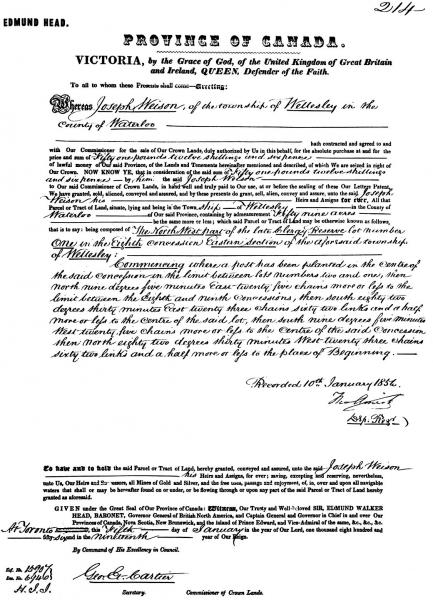 214
EDMUND HEAD.
PROVINCE OF CANADA.
VICTORIA, by the Grace of God, of the United Kingdom of Great Britain
and Ireland, QUEEN, Defender of the Faith.
To all to whom these Presents shall come—Greeting:
Whereas Joseph Weison, of the township of Wellesley in the
County of Waterloo
hath contracted and agreed to and
with Our Commissioner for the sale of Our Crown Lands, duly authorized by Us in this behalf, for the absolute purchase at and for the
price and sum of Fifty one pounds twelve shillings and sixpence
of lawful money of Our said Province, of the Lands and Tenements hereinafter mentioned and described, of which We are seized in right of
Our Crown. NOW KNOW YE, that in consideration of the said sum of Fifty one pounds twelve shillings
and sixpence by him the said Joseph Weison
to Our said Commissioner of Crown Lands, in hand well and truly paid to Our use, at or before the sealing of these Our Letters Patent,
We have granted, sold, aliened, conveyed and assured, and by these presents do grant, sell, alien, convey and assure, unto the said Joseph
Weison his Heirs and Assigns for ever, all that
Parcel or Tract of Land, situate, lying and being in the Town ship of Wellesley in the County of
Waterloo of Our said Province, containing by admeasurement Fifty nine acres
be the same more or less; which said Parcel or Tract of Land may be otherwise known as follows,
that is to say: being composed of The North West part of the late Clergy Reserve lot number
One in the Eighth concession Eastern section of the aforesaid township
of Wellesley:
Commencing where a post has been planted in the centre of
the said concession in the limit between lots numbers two and one, then
north nine degrees five minutes East twenty five chains more or less to the
limit between the Eighth and ninth concessions, then south eighty two
degrees thirty minutes East twenty three chains sixty two links and a half
more or less to the centre of the said lot, then south nine degrees five minutes
West twenty five chains more or less to the centre of the said concession
then north eighty two degrees thirty minutes West twenty three chains
sixty two links and a half more or less to the place of Beginning.
Recorded 10th January 1856.
To have and to hold the said Parcel or Tract of Land, hereby granted, conveyed and assured, unto the said Joseph Weison
his Heirs and Assigns, for ever; saving, excepting and reserving, nevertheless,
unto Us, Our Heirs and Successors, all Mines of Gold and Silver, and the free uses, passage and enjoyment, of, in, over and upon all navigable
waters that shall or may be hereafter found on or under, or be flowing through or upon any part of the said Parcel or Tract of Land hereby
granted as aforesaid.
GIVEN under the Great Seal of Our Province of Canada: Witness, Our Trusty and Well-Beloved SIR, EDMUND WALKER
HEAD, BARONET, Governor General of British North America, and Captain General and Governor in Chief in and over Our
Provinces of Canada, Nova Scotia, New Brunswick, and the Island of Prince Edward, and Vice-Admiral of the same, &c., &c., &c.
At Toronto, this Fifth day of January in the year of Our Lord, one thousand eight hundred and
fifty-six and in the nineteenth year of Our Reign.
By Command of His Excellency in Council.
Geo. E. Cartier
Secretary. Commissioner of Crown Lands.